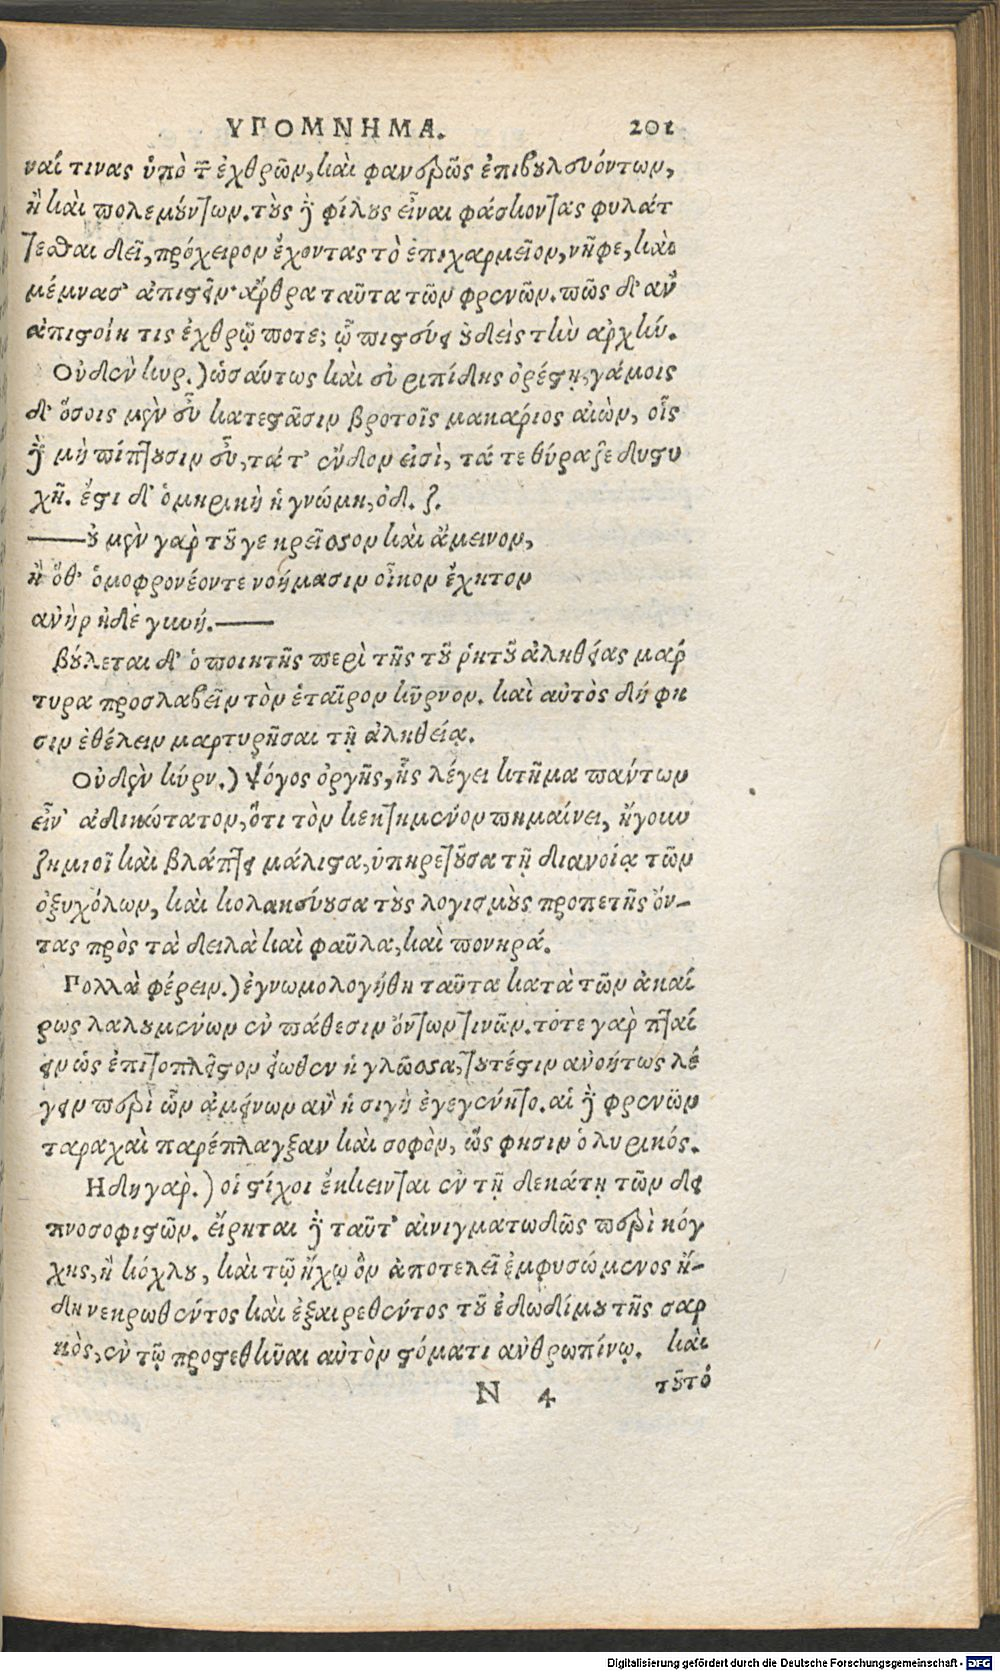 ΥΠΟΜΝΗΜΑ. 201
ναί τινας ὑπὸ τ ἐχθρῶν, καὶ φανερῶς ἐπιβουλευόντων,
ἢ καὶ πολεμούντων. τοὺς δὲ φίλους εἶναι φάσκοντας φυλάτ
τεσθαι δεῖ, πρόχειρον ἔχοντας τὸ ἐπιχαρμεῖον, νῆφε, καὶ
μέμνασ' ἀπιστεῖν· ἄρθρα ταῦτα τῶν φρενῶν. πῶς δ' ἂν
ἀπιστοίη τις ἐχθρῷ ποτε; ᾧ πιστεύει οὐδεὶς τὴν ἀρχήν.
Οὐδὲν κυρ.) ὡσαύτως καὶ εὐριπίδης ὀρέστῃ, γάμοις
δ' ὅσοις μὲν εὖ κατεστᾶσιν βροτοῖς μακάριος αἰὼν, οἷς
δὲ μὴ πίπτουσιν εὖ, τά τ' ἔνδον εἰσὶ, τά τε θύραζε δυστυ
χῆ. ἔστι δ' ὁμηρικὴ ἡ γνώμη, ὀδ. ζ.
—οὐ μὲν γὰρ τοῦ γε κρεῖσσον καὶ ἄμεινον,
ἢ ὅθ' ὁμοφρονέοντε νοήμασιν οἶκον ἔχητον
ἀνὴρ ἠδὲ γυνή.—
βούλεται δ' ὁ ποιητὴς περὶ τῆς τοῦ ῥητοῦ ἀληθείας μάρ
τυρα προσλαβεῖν τὸν ἑταῖρον κῦρνον. καὶ αὐτὸς δή φη
σιν ἐθέλειν μαρτυρῆσαι τῇ ἀληθείᾳ.
Οὐδὲν κύρν.) ψόγος ὀργῆς, ἧς λέγει κτῆμα πάντων
εἶν' ἀδικώτατον, ὅτι τὸν κεκτημένον πημαίνει, ἤγουν
ζημιοῖ καὶ βλάπτει μάλιστα, ὑπηρετοῦσα τῇ διανοίᾳ τῶν
ὀξυχόλων, καὶ κολακεύουσα τοὺς λογισμοὺς προπετῆς ὄν-
τας πρὸς τὰ δειλὰ καὶ φαῦλα, καὶ πονηρά.
Πολλὰ φέρειν.) ἐγνωμολογήθη ταῦτα κατὰ τῶν ἀκαί
ρως λαλουμένων ἐν πάθεσιν ὄντων τινῶν. τότε γὰρ πταί
ειν ὡς ἐπιτοπλεῖστον εἴωθεν ἡ γλῶσσα, τουτέστιν ἀνοήτως λέ
γειν περὶ ὧν ἀμείνων ἂν ἡ σιγὴ ἐγεγένητο. αἱ δὲ φρενῶν
ταραχαὶ παρέπλαγξαν καὶ σοφὸν, ὥς φησιν ὁ λυρικός.
Ηδη γὰρ.) οἱ στίχοι ἔκκεινται ἐν τῇ δεκάτῃ τῶν δει
πνοσοφιστῶν. εἴρηται δὲ ταῦτ' αἰνιγματωδῶς περὶ κόγ
χης, ἢ κόχλου, καὶ τῷ ἤχῳ ὃν ἀποτελεῖ ἐμφυσώμενος ἤ-
δη νεκρωθέντος καὶ ἐξαιρεθέντος τοῦ ἐδωδίμου τῆς σαρ
κὸς, ἐν τῷ προστεθῆναι αὐτὸν στόματι ἀνθρωπίνῳ. καὶ
Ν 4 τοῦτό
Digitalisierung gefördert durch die Deutsche Forschungsgemeinschaft - DFG